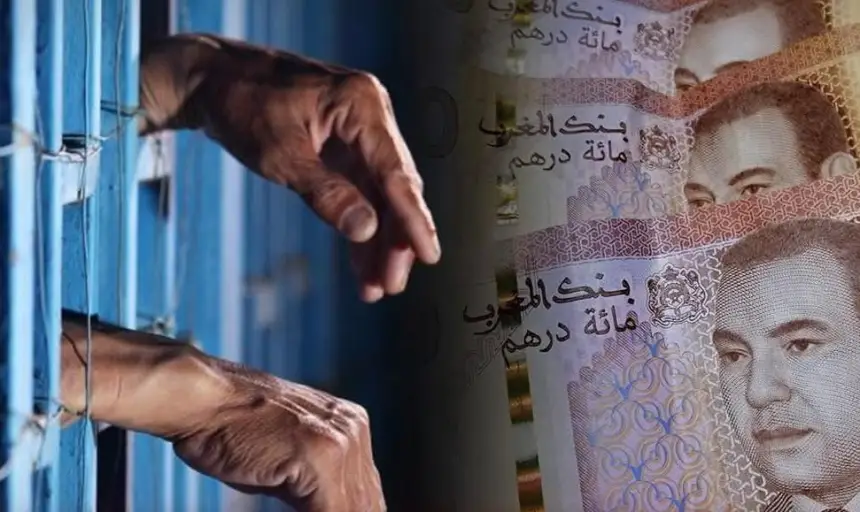 بنك المغرب
مائة درهم
بنك المغرب
مائة درهم
بنك المغرب
مائة درهم